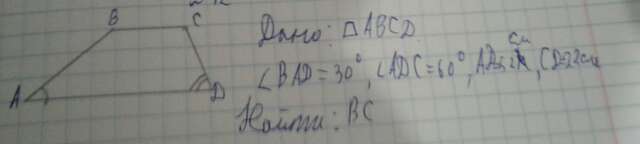 B C
Дано: □ABCD
∠BAD = 30°, ∠ADC = 60°, AD = см, CD = 22см
A D
Найти: BC